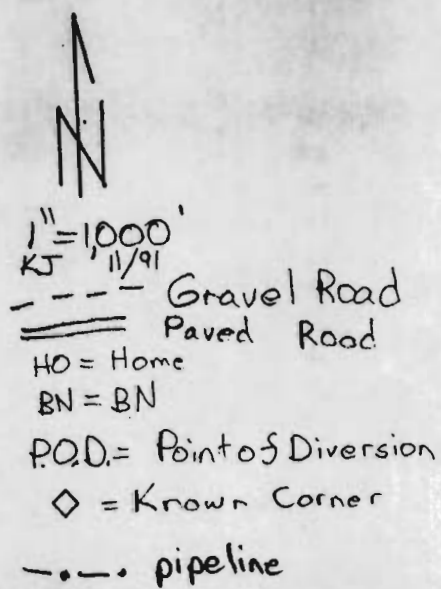 N
1"=1,000'
KJ 11/91
Gravel Road
Paved Road
HO = Home
BN = BN
P.O.D. = Point of Diversion
◇ = Known Corner
pipeline